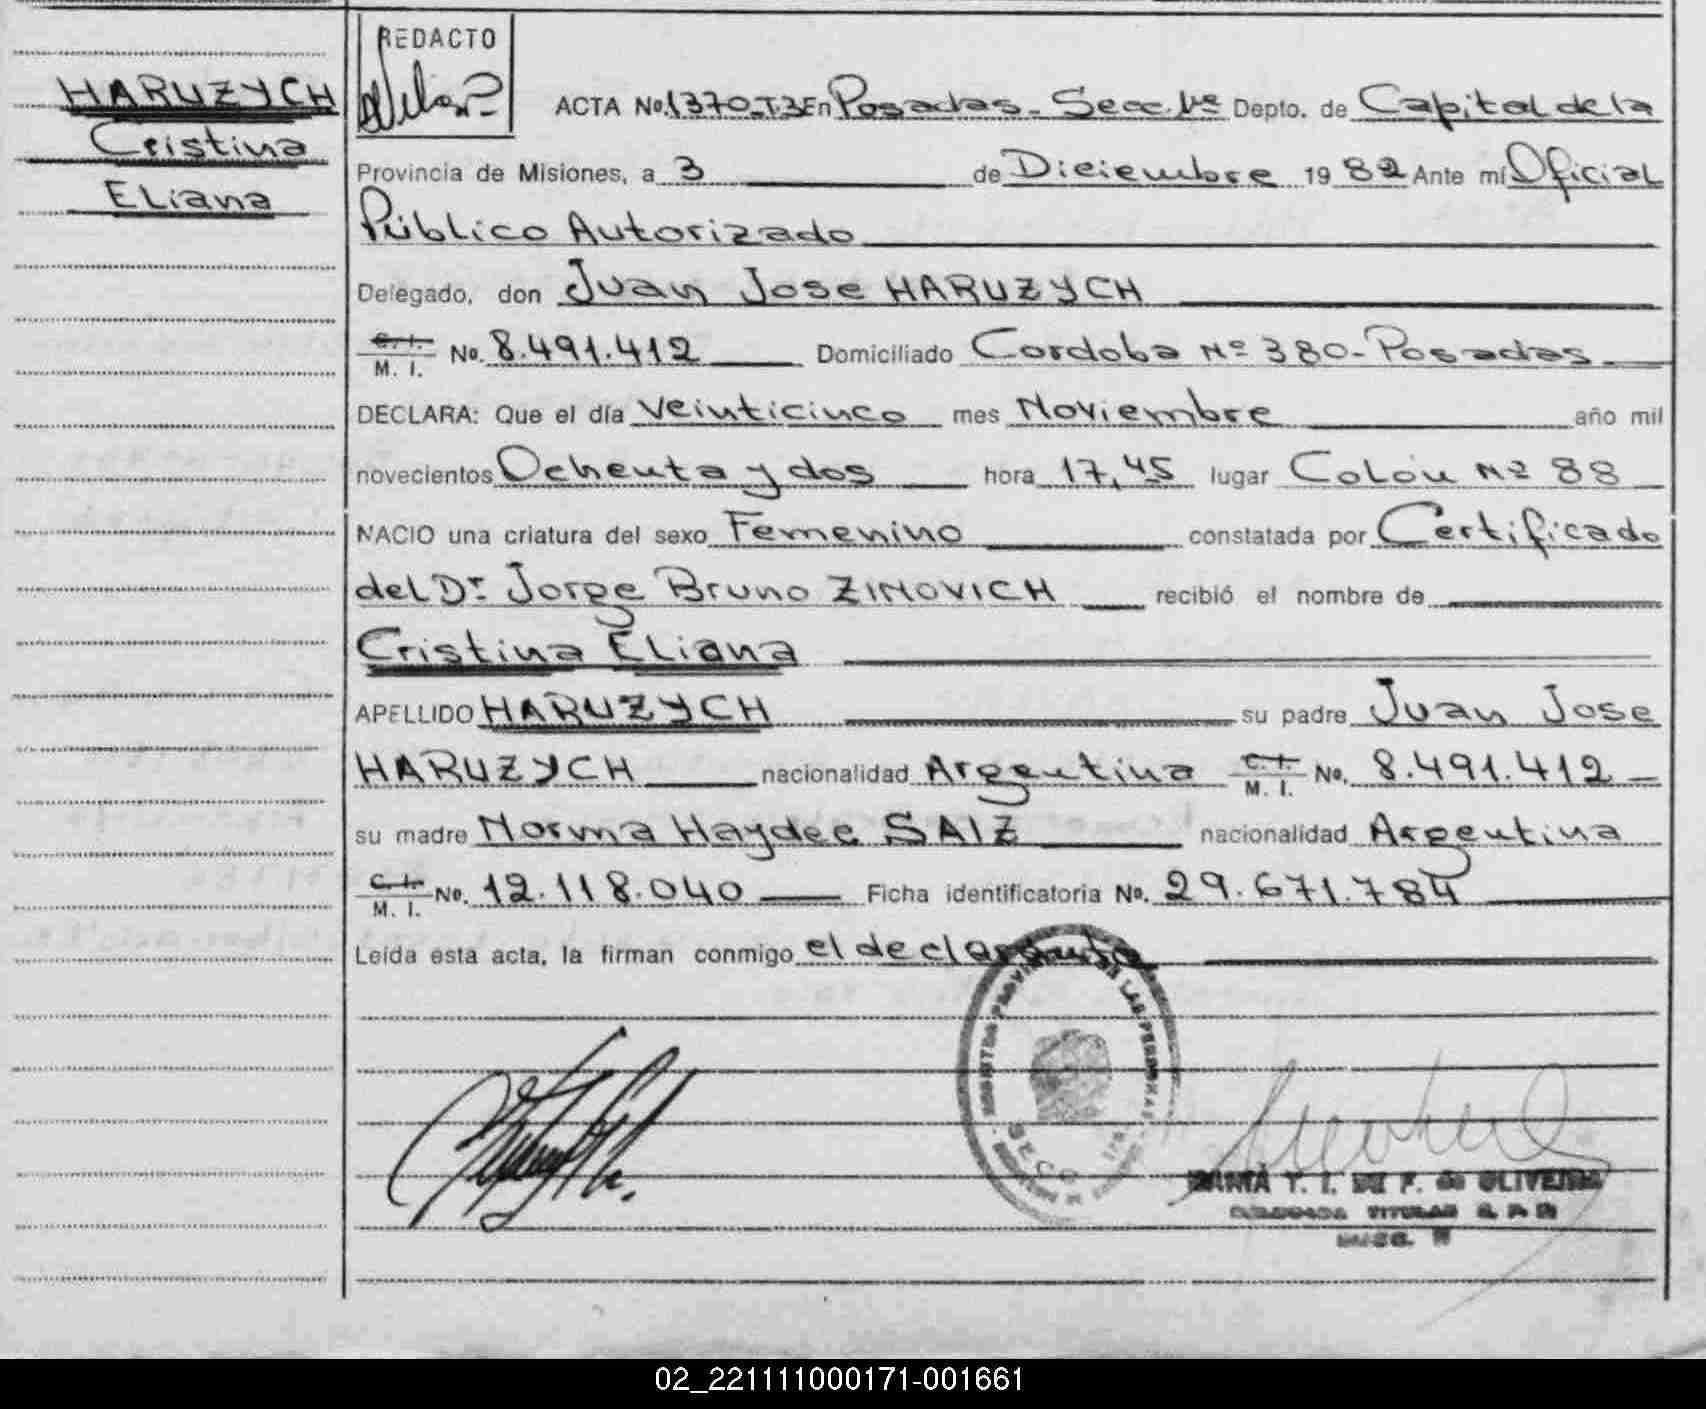 HARUZYCH
Cristina
ELiana
REDACTO
ACTA No. 1370-T.3 En Posadas - Secc. 1ra Depto. de Capital de la
Provincia de Misiones, a 3 de Diciembre 1982 Ante mí Oficial
Público Autorizado
Delegado, don Juan Jose HARUZYCH
C. I.
M. I. No. 8.491.412 Domiciliado Cordoba Nº 380 - Posadas
DECLARA: Que el día veinticinco mes Noviembre año mil
novecientos Ochenta y dos hora 17,45 lugar Colón Nº 88
NACIO una criatura del sexo Femenino constatada por Certificado
del Dr. Jorge Bruno ZIMOVICH recibió el nombre de
Cristina ELiana
APELLIDO HARUZYCH su padre Juan Jose
HARUZYCH nacionalidad Argentina C. I. M. I. No. 8.491.412
su madre Norma Haydee SAIZ nacionalidad Argentina
C. I.
M. I. No. 12.118.040 Ficha identificatoria No. 29.671.784
Leída esta acta, la firman conmigo el declarante
REGISTRO PROVINCIAL DE LAS PERSONAS
SECC
T. I. DE F. de OLIVEIRA
TITULAR
SECC.
02_221111000171-001661